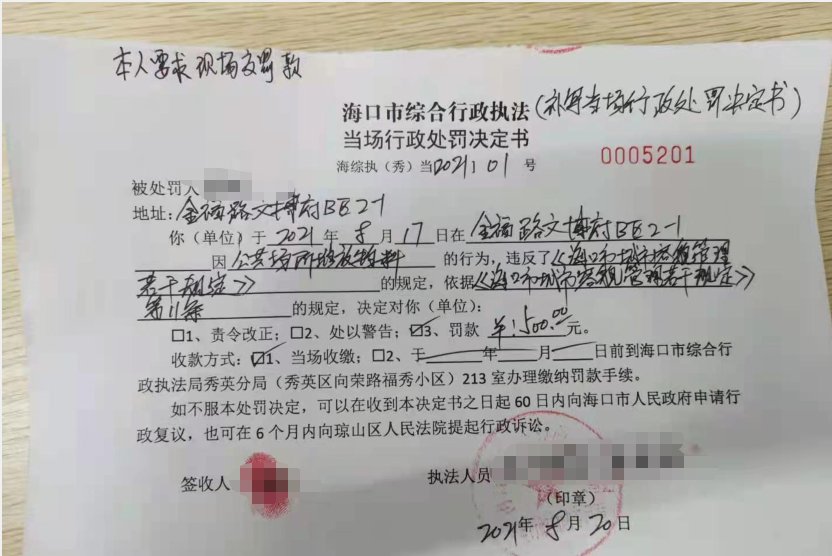 本人要求现场交罚款
海口市综合行政执法(补写当场行政处罚决定书)
当场行政处罚决定书
海综执（秀）当2021］01 号
0005201
被处罚人
地址：金福路文博府B区2-1
你（单位）于 2021 年 8 月 17 日在 金福路文博府B区2-1
因 公共场所堆放物料 的行为，违反了《海口市城市容貌管理
若干规定》 的规定，依据《海口市城市容貌管理若干规定》
第11条 的规定，决定对你（单位）：
□1、责令改正；□2、处以警告；☑3、罚款 ¥:500.00元。
收款方式：☑1、当场收缴；□2、于 年 月 日前到海口市综合行
政执法局秀英分局（秀英区向荣路福秀小区）213 室办理缴纳罚款手续。
如不服本处罚决定，可以在收到本决定书之日起 60 日内向海口市人民政府申请行
政复议，也可在 6 个月内向琼山区人民法院提起行政诉讼。
签收人
执法人员
（印章）
2021年 8 月 20 日